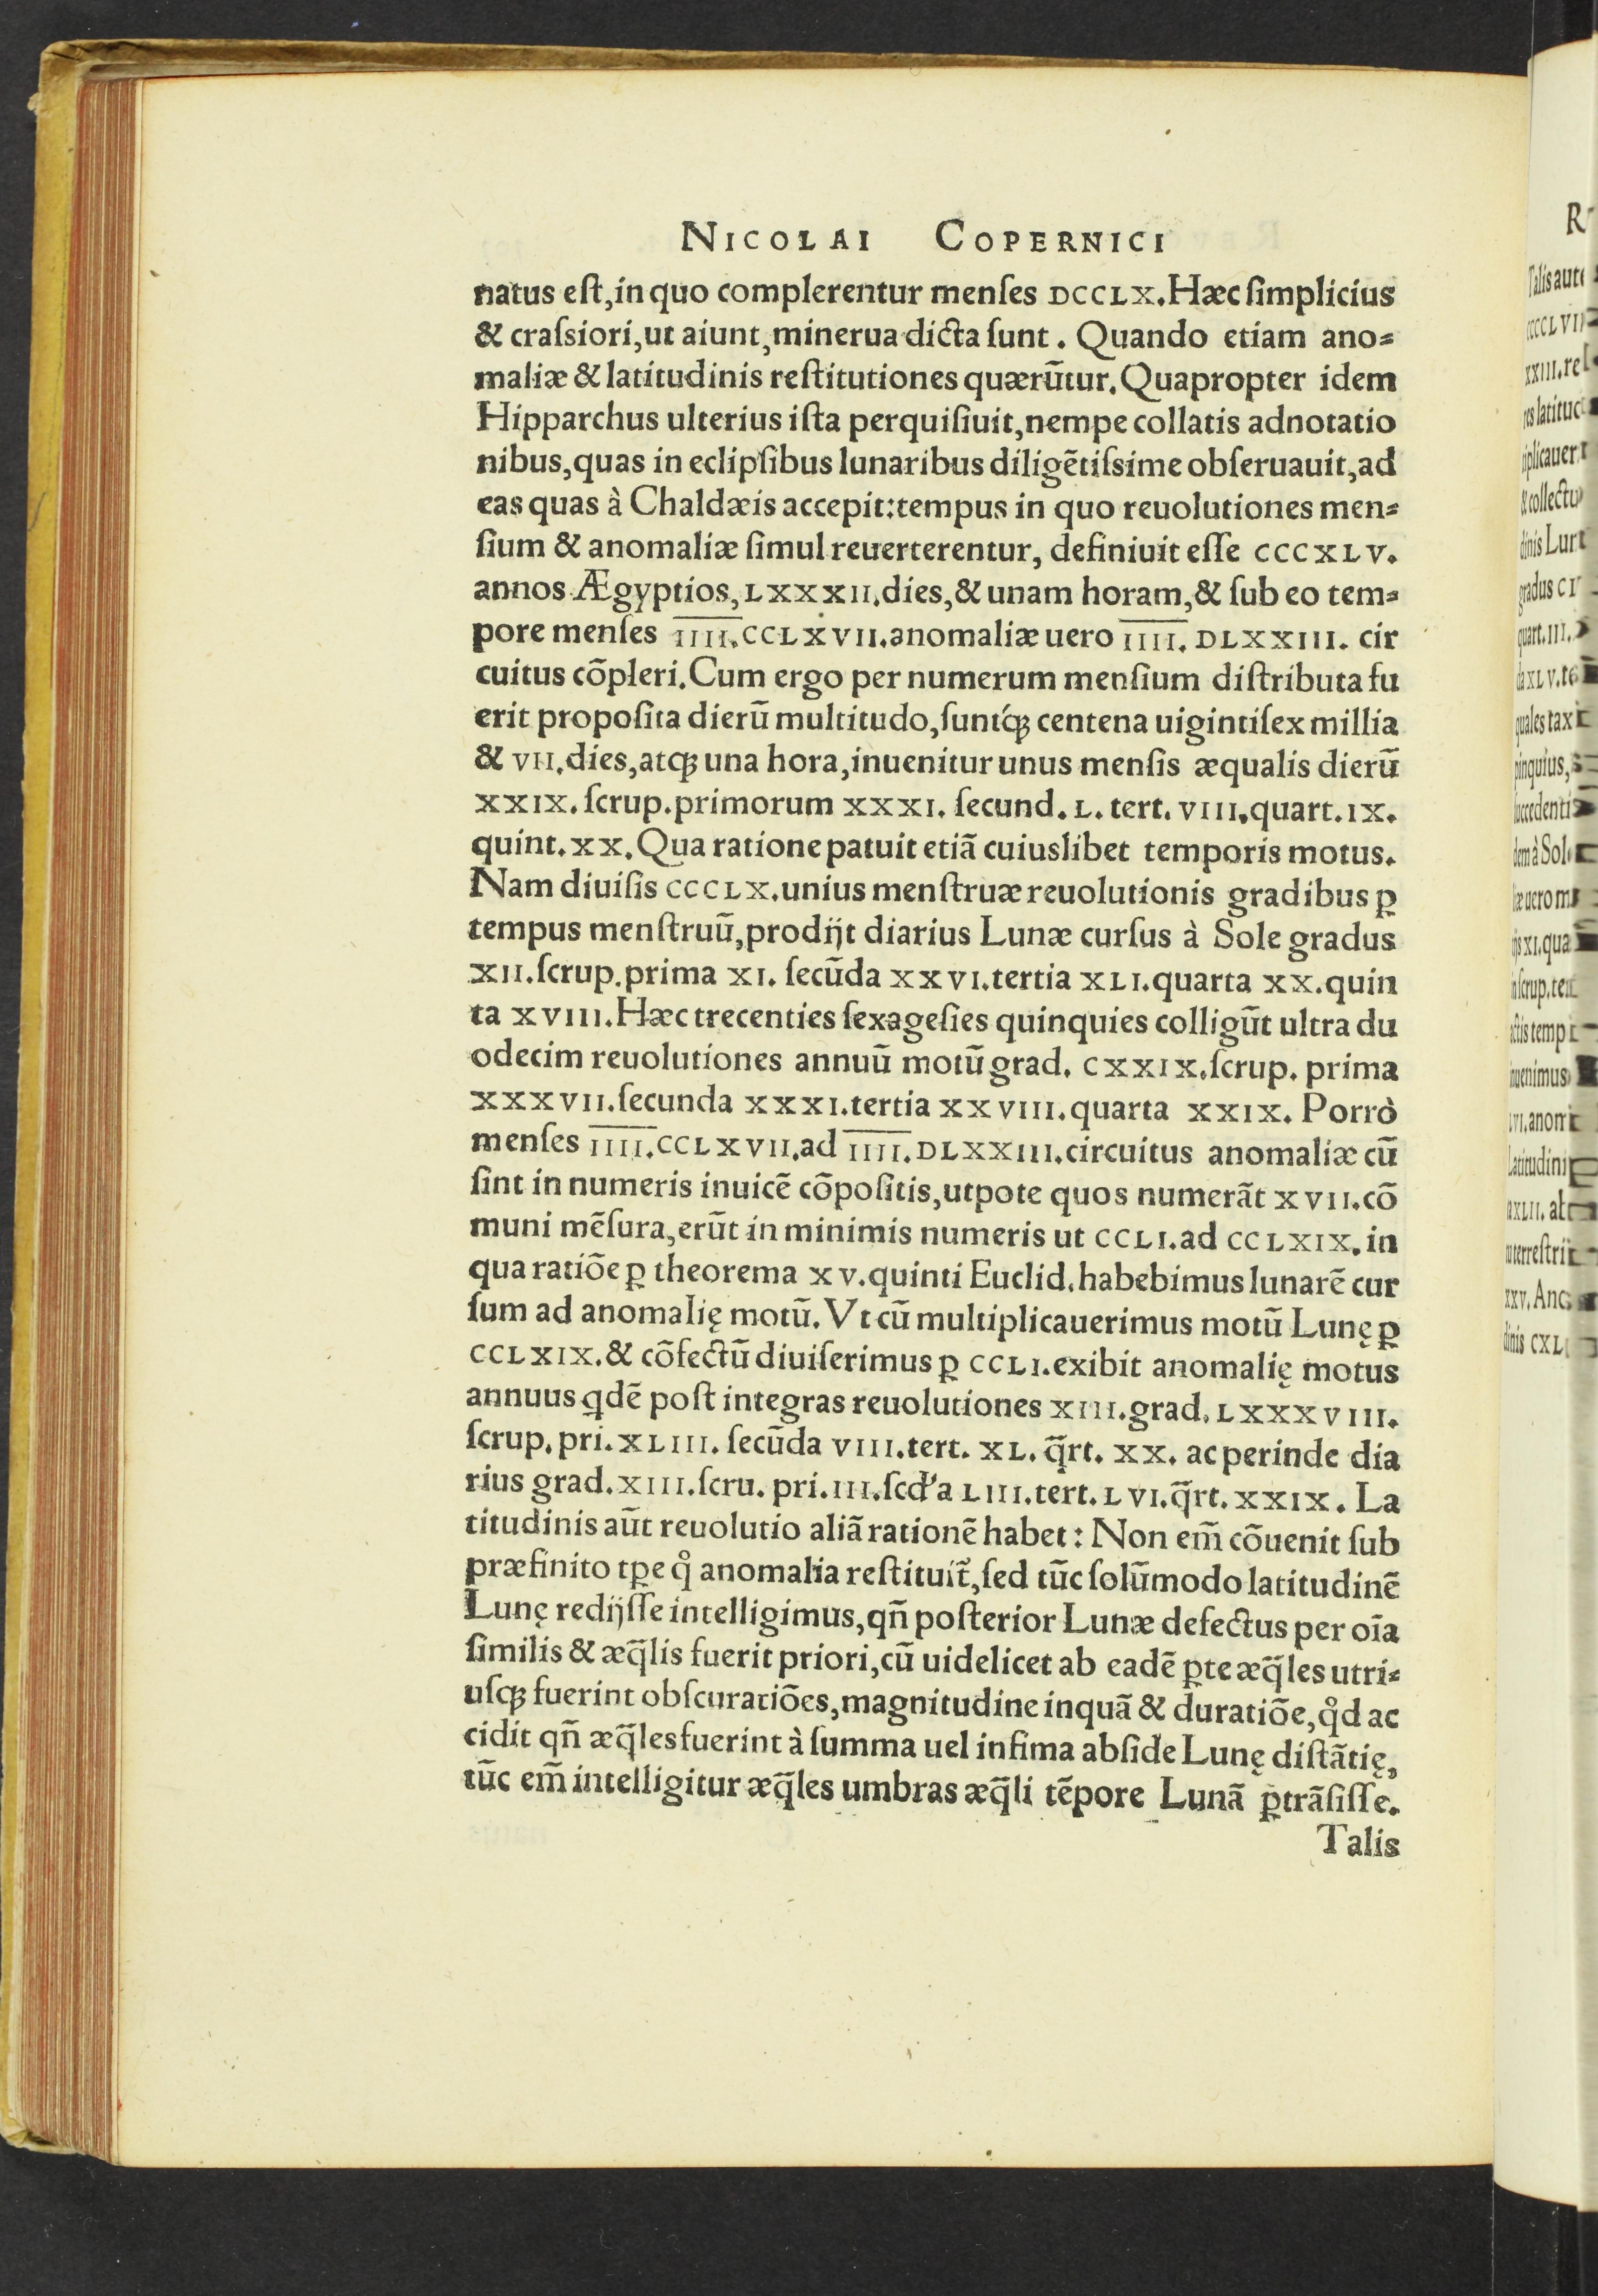 NICOLAI COPERNICI
natus eſt, in quo complerentur menſes DCCLX. Hæc ſimplicius
& craſsiori, ut aiunt, minerua dicta ſunt. Quando etiam ano⸗
maliæ & latitudinis reſtitutiones quærũtur. Quapropter idem
Hipparchus ulterius iſta perquiſiuit, nempe collatis adnotatio
nibus, quas in eclipſibus lunaribus diligẽtiſsime obſeruauit, ad
eas quas à Chaldæis accepit: tempus in quo reuolutiones men⸗
ſium & anomaliæ ſimul reuerterentur, definiuit eſſe CCCXLV.
annos Ægyptios, LXXXII. dies, & unam horam, & ſub eo tem⸗
pore menſes I̅I̅I̅I̅. CCLXVII. anomaliæ uero I̅I̅I̅I̅. DLXXIII. cir
cuitus cõpleri. Cum ergo per numerum menſium diſtributa fu
erit propoſita dierũ multitudo, ſuntq́ꝫ centena uigintiſex millia
& VII. dies, atqꝫ una hora, inuenitur unus menſis æqualis dierũ
XXIX. ſcrup. primorum XXXI. ſecund. L. tert. VIII. quart. IX.
quint. XX. Qua ratione patuit etiã cuiuslibet temporis motus.
Nam diuiſis CCCLX. unius menſtruæ reuolutionis gradibus ꝑ
tempus menſtruũ, prodijt diarius Lunæ curſus à Sole gradus
XII. ſcrup. prima XI. ſecũda XXVI. tertia XLI. quarta XX. quin
ta XVIII. Hæc trecenties ſexageſies quinquies colligũt ultra du
odecim reuolutiones annuũ motũ grad. CXXIX. ſcrup. prima
XXXVII. ſecunda XXXI. tertia XXVIII. quarta XXIX. Porrò
menſes I̅I̅I̅I̅. CCLXVII. ad I̅I̅I̅I̅. DLXXIII. circuitus anomaliæ cũ
ſint in numeris inuicẽ cõpoſitis, utpote quos numerãt XVII. cõ
muni mẽſura, erũt in minimis numeris ut CCLI. ad CCLXIX. in
qua ratiõe ꝑ theorema XV. quinti Euclid. habebimus lunarẽ cur
ſum ad anomalię motũ. Vt cũ multiplicauerimus motũ Lunę ꝑ
CCLXIX. & cõfectũ diuiſerimus ꝑ CCLI. exibit anomalię motus
annuus ꝗdẽ poſt integras reuolutiones XIII. grad. LXXXVIII.
ſcrup. pri. XLIII. ſecũda VIII. tert. XL. q̃rt. XX. ac perinde dia
rius grad. XIII. ſcru. pri. III. ſcd'a LIII. tert. LVI. q̃rt. XXIX. La
titudinis aũt reuolutio aliã rationẽ habet: Non em̃ cõuenit ſub
præfinito tꝑe qͦ anomalia reſtituit̃, ſed tũc ſolũmodo latitudinẽ
Lunę redijſſe intelligimus, qñ poſterior Lunæ defectus per oĩa
ſimilis & æq̃lis fuerit priori, cũ uidelicet ab eadẽ ꝑte æq̃les utri⸗
uſqꝫ fuerint obſcuratiões, magnitudine inquã & duratiõe, qͦd ac
cidit qñ æq̃les fuerint à ſumma uel infima abſide Lunę diſtãtię,
tũc em̃ intelligitur æq̃les umbras æq̃li tẽpore Lunã ꝑtrãſiſſe.
Talis